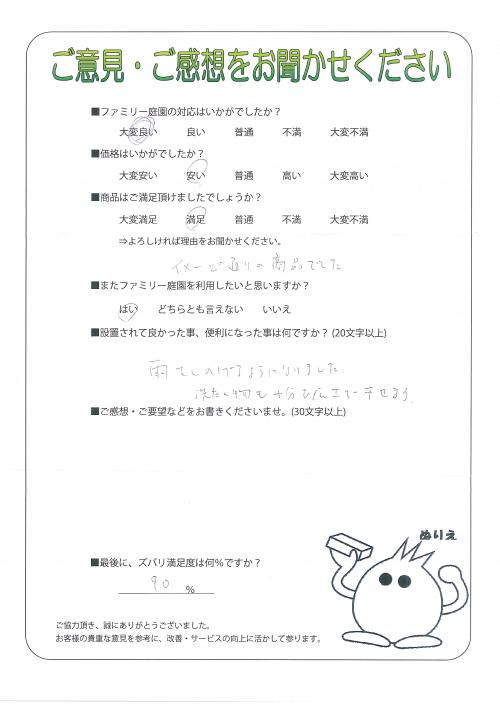 ご意見・ご感想をお聞かせください
■ファミリー庭園の対応はいかがでしたか？
大変良い 良い 普通 不満 大変不満
■価格はいかがでしたか？
大変安い 安い 普通 高い 大変高い
■商品はご満足頂けましたでしょうか？
大変満足 満足 普通 不満 大変不満
⇒よろしければ理由をお聞かせください。
イメージ通りの商品でした
■またファミリー庭園を利用したいと思いますか？
はい どちらとも言えない いいえ
■設置されて良かった事、便利になった事は何ですか？(20文字以上)
雨をしのげるようになりました
洗たく物も十分な広さで干せます
■ご感想・ご要望などをお書きくださいませ。(30文字以上)
ぬりえ
■最後に、ズバリ満足度は何％ですか？
90 ％
ご協力頂き、誠にありがとうございました。
お客様の貴重な意見を参考に、改善・サービスの向上に活かして参ります。